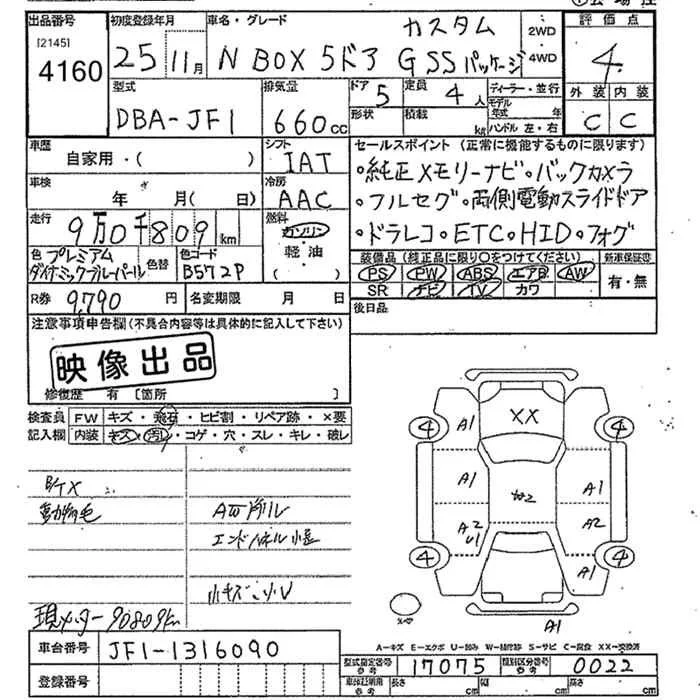 出品番号 初度登録年月 車名・グレード カスタム 2WD 評価点
[2145] 4160 25年 11月 N BOX 5ドア G SSパッケージ 4WD 4
型式 排気量 ドア 5 定員 4人 ディーラー・並行 外装 内装
DBA-JF1 660cc 形状 積載 kg モデル年式 年 ハンドル 左・右 C C
車歴 シフト セールスポイント(正常に機能するものに限ります)
自家用・( ) IAT ・純正メモリーナビ・バックカメラ
車検 冷房
年 月( 日) AAC ・フルセグ・両側電動スライドドア
走行 9万0千809km 燃料 ガソリン ・ドラレコ・ETC・HID・フォグ
色 プレミアムダイナミックブルーパール 色替 色コード B572P 軽油 ( )
装備品(純正品に限り○をつけてください) 新車保証書
PS PW ABS エアB AW 有・無
SR ナビ TV カワ
R券 9,790円 名変期限 月 日 後日品
注意事項申告欄(不具合内容等は具体的に記入して下さい)
映像出品
修復歴 有 [箇所 ]
検査員 FW キズ・飛石・ヒビ割・リペア跡・×要
記入欄 内装 キズ・汚れ・コゲ・穴・スレ・キレ・破レ
動物毛
現メーター 90809km
4 A1 XX 4
A1 A1
A2 U1 A2
4 A1 4
A1
A-キズ E-エクボ U-凹み W-補修跡 S-サビ C-腐食 XX-交換済
車台番号 JF1-1316090 型式指定番号 参考 17075 類別区分番号 参考 0022
登録番号 車体証明用 参考 長さ cm 幅 cm 高さ cm